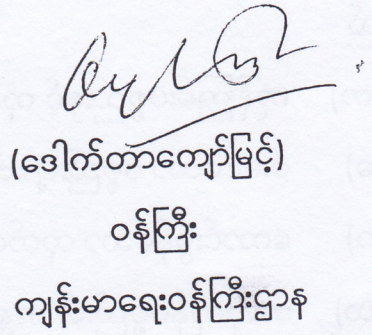 (ဒေါက်တာကျော်မြင့်)
ဝန်ကြီး
ကျန်းမာရေးဝန်ကြီးဌာန